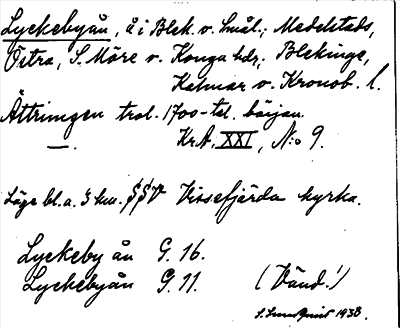 Lyckebyån, å i Blek. o. Smål.; Medelstads,
Östra, S. Möre o. Konga hdr; Blekinge,
Kalmar o. Kronob. l.
Ättringen trol. 1700-tal. början.
—. Kr.A. XXI, N:o 9.
Läge bl.a. 3 km. SSV Vissefjärda kyrka.
Lyckeby ån G. 16.
Lyckebyån G. 11. (Vänd!)
S. Sundquist 1938.